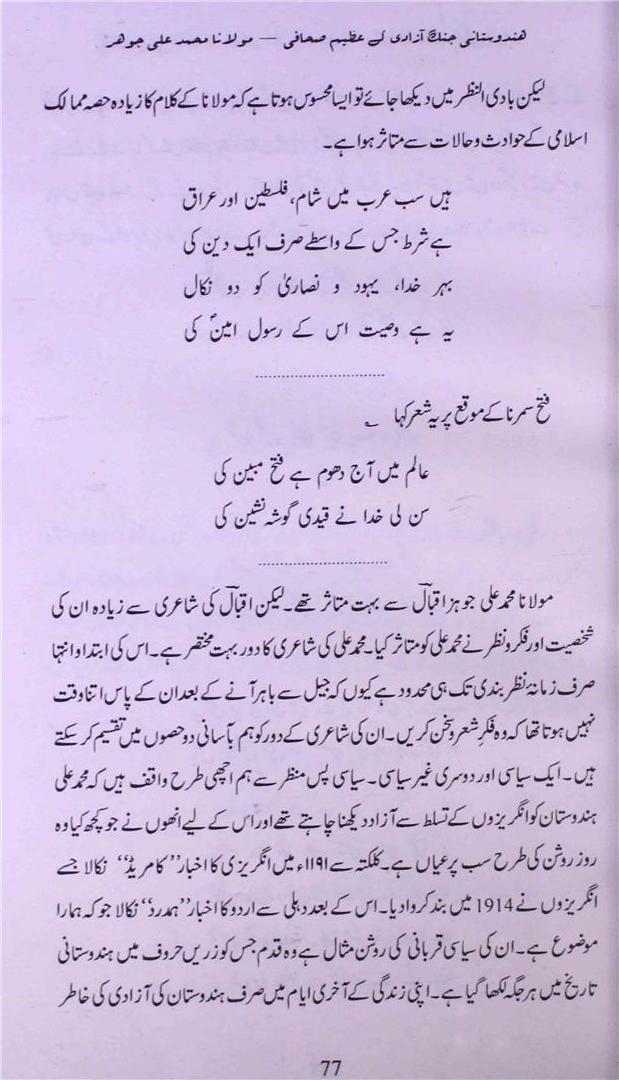 ھندوستانی جنگ آزادی کے عظیم صحافی — مولانا محمد علی جوھر
لیکن بادی النظر میں دیکھا جائے تو ایسا محسوس ہوتا ہے کہ مولانا کے کلام کا زیادہ حصہ ممالک
اسلامی کے حوادث و حالات سے متاثر ہوا ہے۔
ہیں سب عرب میں شام، فلسطین اور عراق
ہے شرط جس کے واسطے صرف ایک دین کی
بہر خدا، یہود و نصاریٰ کو دو نکال
یہ ہے وصیت اس کے رسول امینؐ کی
................................
فتح سمرنا کے موقع پر یہ شعر کہا ؎
عالم میں آج دھوم ہے فتح مبین کی
سن لی خدا نے قیدی گوشہ نشین کی
................................
مولانا محمد علی جوہر اقبالؔ سے بہت متاثر تھے۔ لیکن اقبالؔ کی شاعری سے زیادہ ان کی
شخصیت اور فکر و نظر نے محمد علی کو متاثر کیا۔ محمد علی کی شاعری کا دور بہت مختصر ہے۔ اس کی ابتدا و انتہا
صرف زمانۂ نظر بندی تک ہی محدود ہے کیوں کہ جیل سے باہر آنے کے بعد ان کے پاس اتنا وقت
نہیں ہوتا تھا کہ وہ فکرِ شعر و سخن کریں۔ ان کی شاعری کے دور کو ہم بآسانی دو حصوں میں تقسیم کر سکتے
ہیں۔ ایک سیاسی اور دوسری غیر سیاسی۔ سیاسی پس منظر سے ہم اچھی طرح واقف ہیں کہ محمد علی
ہندوستان کو انگریزوں کے تسلط سے آزاد دیکھنا چاہتے تھے اور اس کے لیے انھوں نے جو کچھ کیا وہ
روز روشن کی طرح سب پر عیاں ہے۔ کلکتہ سے ۱۱۹۱ء میں انگریزی کا اخبار ’’کامریڈ‘‘ نکالا جسے
انگریزوں نے 1914 میں بند کروا دیا۔ اس کے بعد دہلی سے اردو کا اخبار ’’ہمدرد‘‘ نکالا جو کہ ہمارا
موضوع ہے۔ ان کی سیاسی قربانی کی روشن مثال ہے وہ قدم جس کو زریں حروف میں ہندوستانی
تاریخ میں ہر جگہ لکھا گیا ہے۔ اپنی زندگی کے آخری ایام میں صرف ہندوستان کی آزادی کی خاطر
77